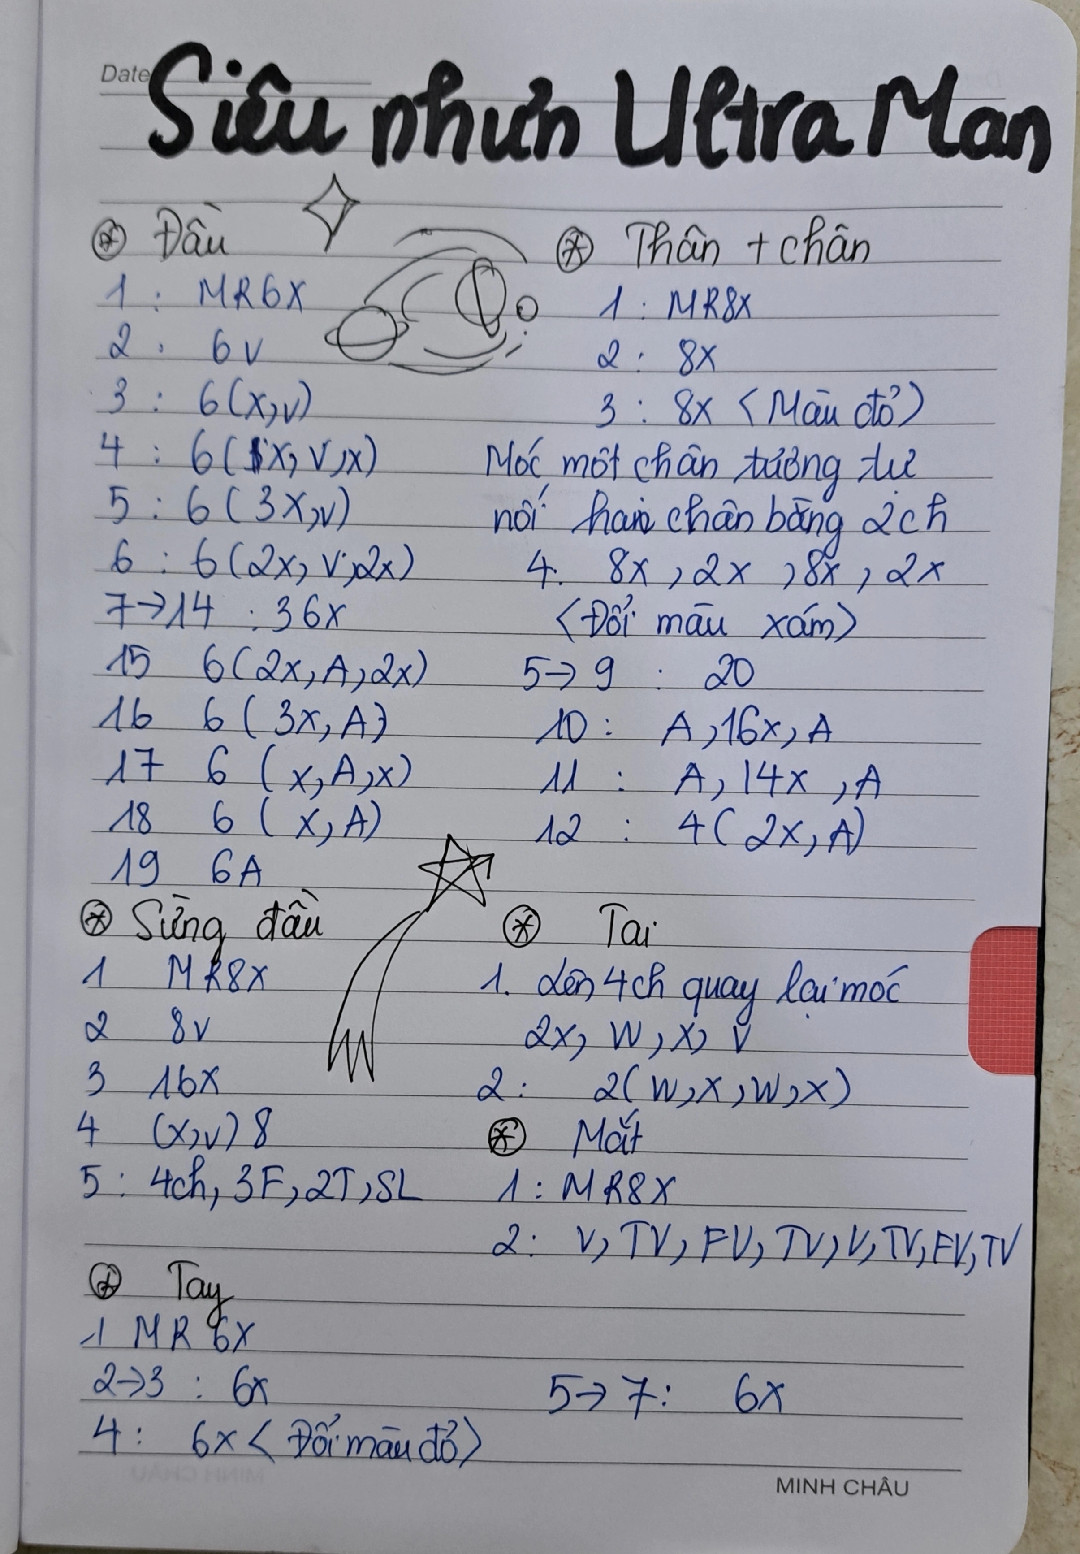 Date
Siêu nhưn Ultra Man
⊛ Đầu
1 : MR6X
2 . 6v
3 : 6(x,v)
4 : 6(x, v,x)
5 : 6(3x,v)
6 : 6(2x, v,2x)
7→14 : 36x
15 6(2x,A,2x)
16 6(3x,A)
17 6 (x,A,x)
18 6 (x,A)
19 6A
⊛ Thân + chân
1 : MR8x
2 : 8x
3 : 8x <Màu đỏ>
Móc một chân tương tự
nối hai chân bằng 2ch
4. 8x ,2x ,8x , 2x
<Đổi màu xám>
5→9 : 20
10 : A,16x,A
11 : A,14x ,A
12 : 4(2x,A)
⊛ Sừng đầu
1 MR8X
2 8v
3 16x
4 (x,v) 8
5 : 4ch, 3F,2T,SL
⊛ Tai
1. lên 4ch quay lại móc
2x, W,x, V
2 : 2(W,x,W,x)
⊛ Mắt
1 : MR8X
2 : V, TV, FV, TV,V,TV,FV,TV
⊛ Tay
1 MR 6X
2→3 : 6x
4 : 6x <Đổi màu đỏ>
5→7 : 6x
MINH CHÂU